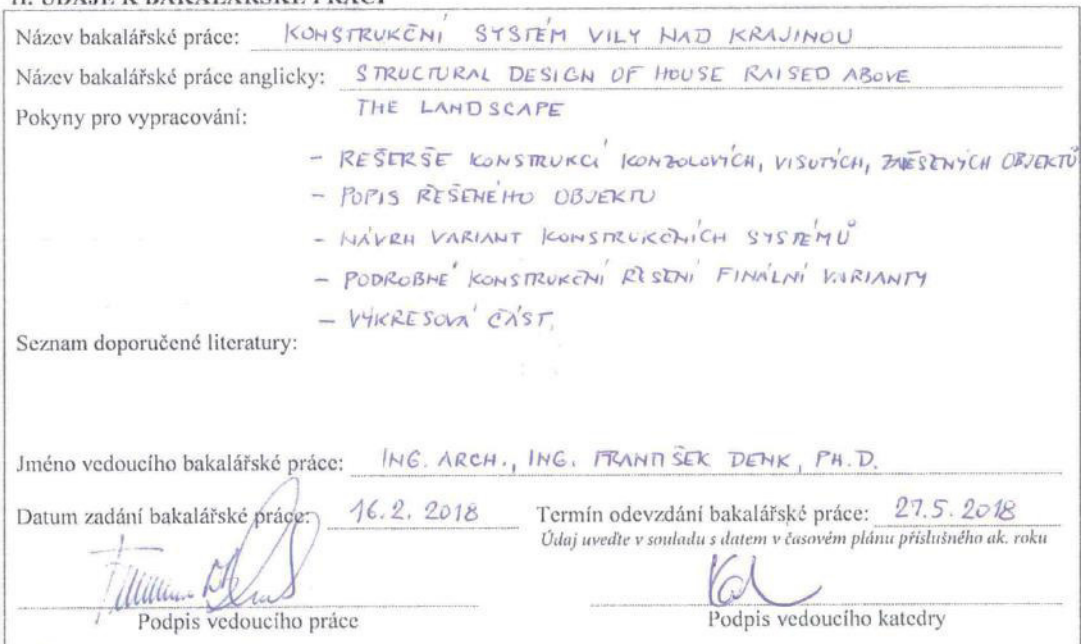 II. ÚDAJE K BAKALÁŘSKÉ PRÁCI
Název bakalářské práce: KONSTRUKČNÍ SYSTÉM VILY NAD KRAJINOU
Název bakalářské práce anglicky: STRUCTURAL DESIGN OF HOUSE RAISED ABOVE
THE LANDSCAPE
Pokyny pro vypracování:
- REŠERŠE KONSTRUKCÍ KONZOLOVÝCH, VISUTÝCH, ZAVĚŠENÝCH OBJEKTŮ
- POPIS ŘEŠENÉHO OBJEKTU
- NÁVRH VARIANT KONSTRUKČNÍCH SYSTÉMŮ
- PODROBNÉ KONSTRUKČNÍ ŘEŠENÍ FINÁLNÍ VARIANTY
- VÝKRESOVÁ ČÁST.
Seznam doporučené literatury:
Jméno vedoucího bakalářské práce: ING. ARCH., ING. FRANTIŠEK DENK, PH.D.
Datum zadání bakalářské práce: 16.2.2018 Termín odevzdání bakalářské práce: 27.5.2018
Údaj uveďte v souladu s datem v časovém plánu příslušného ak. roku
Podpis vedoucího práce Podpis vedoucího katedry